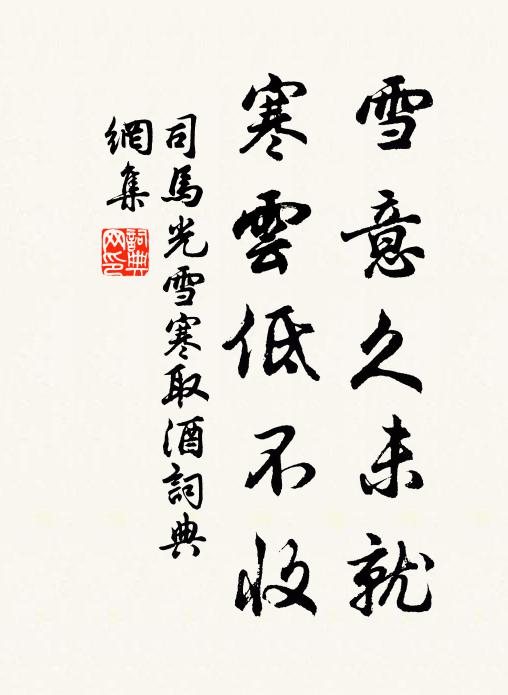 雪意久未就
寒雲低不收
司馬光雪寒取酒詞典
網集
詞典
网印